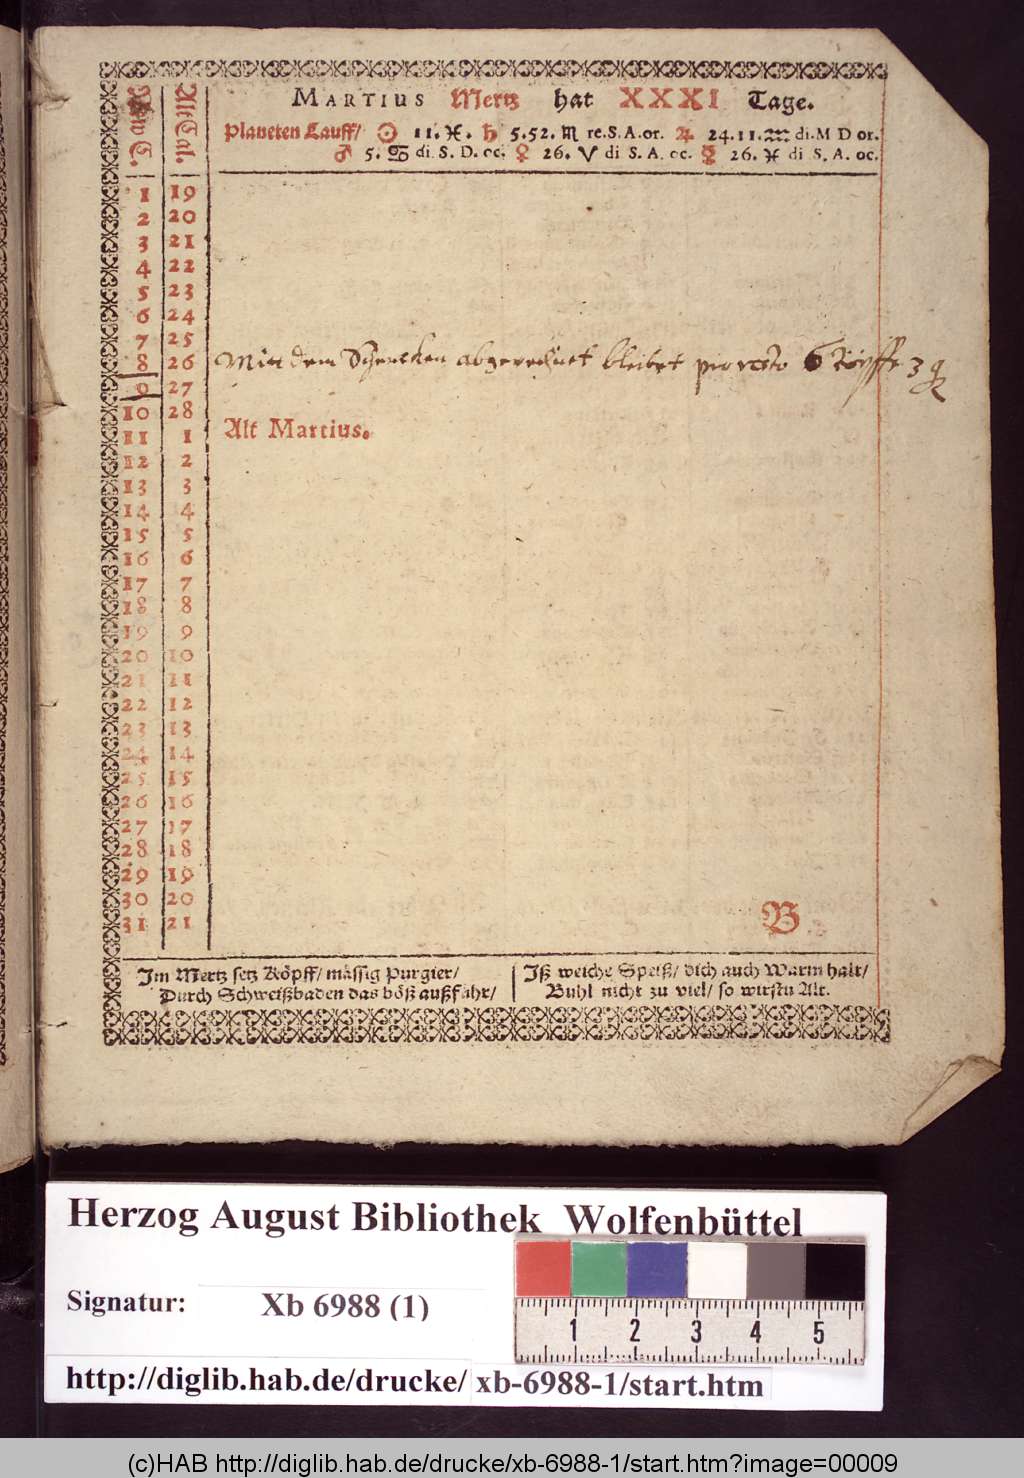 MARTIUS Mertz hat XXXI Tage.
Planeten Lauff/ ☉ 11. ♓. ♄ 5.52. ♏ re.S.A.or. ♃ 24.11. ♒ di.M D or.
♂ 5. ♋ di. S. D. oc. ♀ 26. ♈ di S. A. oc. ☿ 26. ♓ di S. A. oc.
New C. Alt Cal.
1 19
2 20
3 21
4 22
5 23
6 24
7 25
8 26 Mitt dem Schencken abgerechnet bleibet pro resto 6
9 27
10 28
11 1 Alt Martius.
12 2
13 3
14 4
15 5
16 6
17 7
18 8
19 9
20 10
21 11
22 12
23 13
24 14
25 15
26 16
27 17
28 18
29 19
30 20
31 21
B
Im Mertz setz Köpff/ mässig purgier/
Durch Schweißbaden das böß außführ/
Iß weiche Speiß/ dich auch warm halt/
Buhl nicht zu viel/ so wirstu Alt.
Herzog August Bibliothek Wolfenbüttel
Signatur: Xb 6988 (1)
1 2 3 4 5
http://diglib.hab.de/drucke/ xb-6988-1/start.htm
(c)HAB http://diglib.hab.de/drucke/xb-6988-1/start.htm?image=00009